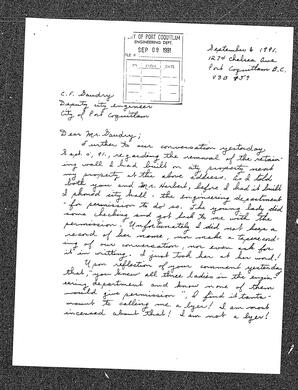 CITY OF PORT COQUITLAM
ENGINEERING DEPT.
SEP 09 1991
FILE #
TO
DATE
September 6 1991.
1274 Chelsea Ave
Port Coquitlam B.C.
V3B
C.F. Gaudry
Deputy city engineer
City of Port Coquitlam
Dear Mr. Gaudry;
Further to our conversation yesterday
Sept. 5, 91, regarding the removal of the retain-
ing wall I had built on city property next
my property at the above address. As I told
both you and Mr. Herbert, before I had it built
I phoned city hall - the engineering department
- for permission to do so. The young lady did
some checking and got back to me with the
permission. Unfortunately I did not keep a
record of her name, nor make a taperecord-
ing of our conversation, nor even ask for
it in writing. I just took her at her word!
Upon reflection of your comment yesterday
that, "you knew all three ladies in the engin-
eering department and know none of them
would give permission", I find it tanta-
mount to calling me a lyer! I am most
incensed about that! I am not a lyer!